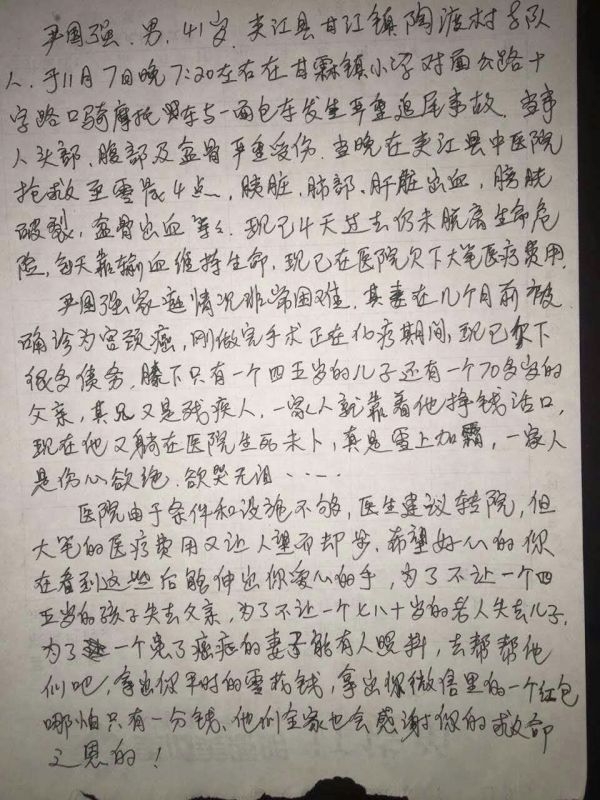 尹国强.男.41岁.夹江县甘江镇陶渡村5队
人.于11月7日晚7:20左右在甘霖镇小学对面公路十
字路口骑摩托车与一面包车发生严重追尾事故.当事
人头部、腹部及盆骨严重受伤.当晚在夹江县中医院
抢救至零晨4点,胰脏、肺部、肝脏出血,膀胱
破裂,盆骨出血等等.现已4天过去仍未脱离生命危
险,每天靠输血维持生命.现已在医院欠下大笔医疗费用.
尹国强家庭情况非常困难.其妻在几个月前被
确诊为宫颈癌,刚做完手术正在化疗期间,现已欠下
很多债务.膝下只有一个四五岁的儿子还有一个70多岁的
父亲,其兄又是残疾人,一家人就靠着他挣钱活口,
现在他又躺在医院生死未卜,真是雪上加霜,一家人
是伤心欲绝.欲哭无泪·····
医院由于条件和设施不够,医生建议转院,但
大笔的医疗费用又让人望而却步.希望好心的你
在看到这些后能伸出你爱心的手,为了不让一个四
五岁的孩子失去父亲,为了不让一个七八十岁的老人失去儿子.
为了一个患了癌症的妻子能有人照料,去帮帮他
们吧,拿出你平时的零花钱,拿出你微信里的一个红包
哪怕只有一分钱.他们全家也会感谢你的救命
之恩的!